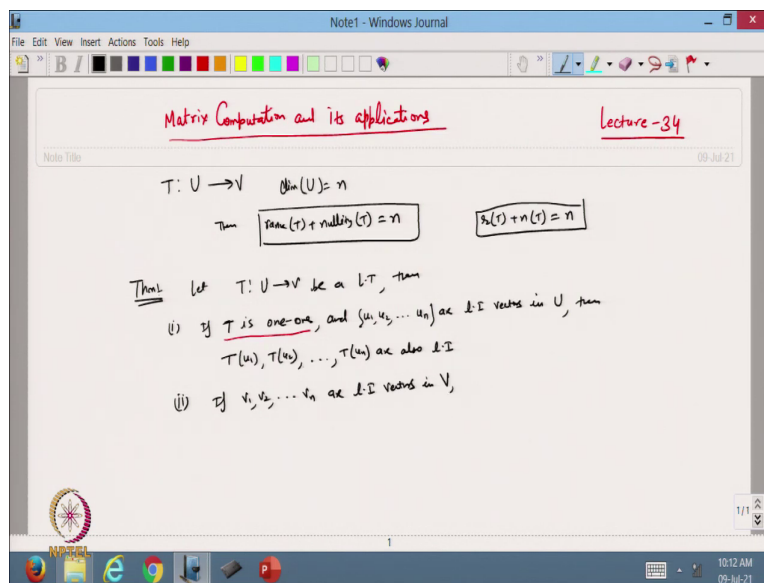 Note1 - Windows Journal
File Edit View Insert Actions Tools Help
B I
Matrix Computation and its applications
Lecture-34
Note Title
09-Jul-21
T: U → V dim(U) = n
Then rank(T) + nullity(T) = n
r(T) + n(T) = n
Thm1 let T: U → V be a L.T, then
(i) If T is one-one, and {u1, u2, ... un} are l.I vectors in U, then
T(u1), T(u2), ..., T(un) are also l.I
(ii) If v1, v2, ... vn are l.I vectors in V,
1/1
1
NPTEL
10:12 AM
09-Jul-21